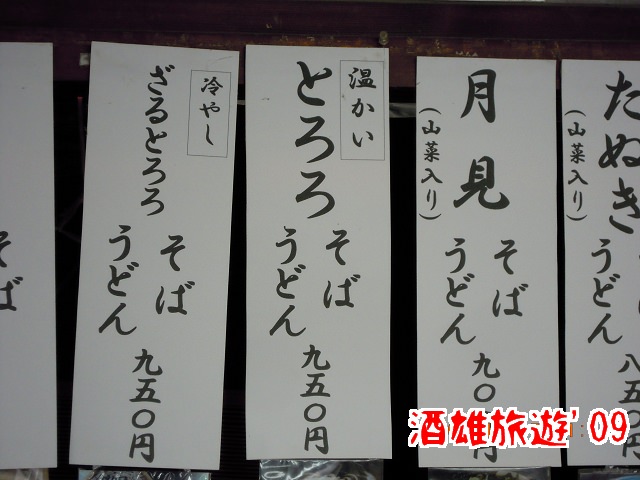 たぬき
(山菜入り)
うどん
八五〇
月見
(山菜入り)
そば
うどん
九〇
温かい
とろろ
そば
うどん
九五〇円
冷やし
ざるとろろ
そば
うどん
九五〇円
そば
酒雄旅遊'09